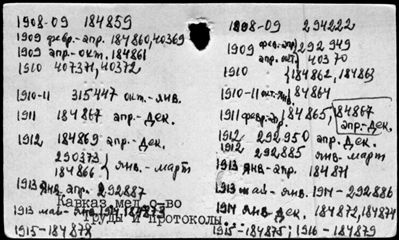 1908-09 184859
1909 февр.-апр. 184860, 40369
1909 апр.-окт. 184861
1910 407371, 40372
1910-11 315447 окт.-янв.
1911 184867 апр.-дек.
1912 184869 апр.-дек.
290373
184866 } янв.-март
1913 янв. апр. 292887
1913 май-янв. 1914
1915-184878
Кавказ.мед.о-во
Труды и протоколы.
1908-09 294222
1909 фев.-апр. 292949
апр. окт. 40370
1910 {184862, 184863
1910-11 окт.-янв. 184864
1911 февр.-апр. 184865, 184867
апр.-дек.
1912 292950 апр.-дек.
1912 292885 янв.-март
1913 янв.-апр. 184871
1913 май-янв. 1914-292886
1914 янв. дек. 184872, 184874
1915-184875; 1916-184879